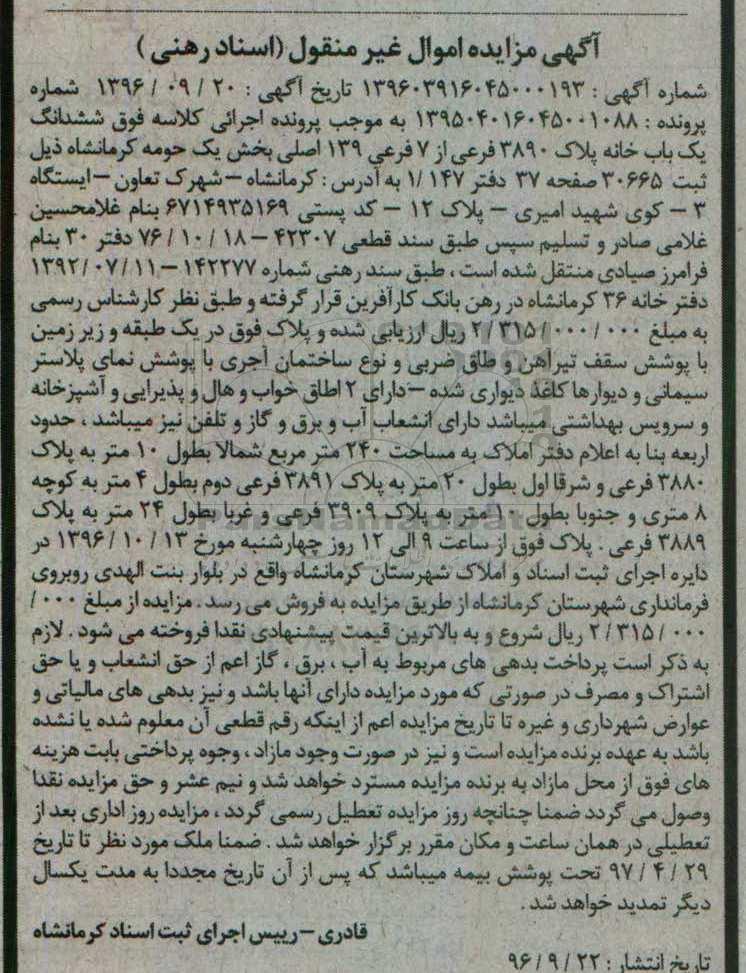 آگهی مزایده اموال غیر منقول (اسناد رهنی )
شماره آگهی : ۱۳۹۶۰۳۹۱۶۰۴۵۰۰۰۱۹۳ تاریخ آگهی : ۲۰ / ۰۹ / ۱۳۹۶ شماره
پرونده : ۱۳۹۵۰۴۰۱۶۰۴۵۰۰۱۰۸۸ به موجب پرونده اجرائی کلاسه فوق ششدانگ
یک باب خانه پلاک ۳۸۹۰ فرعی از ۷ فرعی ۱۳۹ اصلی بخش یک حومه کرمانشاه ذیل
ثبت ۳۰۶۶۵ صفحه ۳۷ دفتر ۱۴۷ /۱ به آدرس : کرمانشاه – شهرک تعاون – ایستگاه
۳ – کوی شهید امیری – پلاک ۱۲ – کد پستی ۶۷۱۴۹۳۵۱۶۹ بنام غلامحسین
غلامی صادر و تسلیم سپس طبق سند قطعی ۴۲۳۰۷ – ۱۸ / ۱۰ / ۷۶ دفتر ۳۰ بنام
فرامرز صیادی منتقل شده است ، طبق سند رهنی شماره ۱۴۲۲۷۷ – ۱۱ / ۰۷ / ۱۳۹۲
دفتر خانه ۳۶ کرمانشاه در رهن بانک کارآفرین قرار گرفته و طبق نظر کارشناس رسمی
به مبلغ ۰۰۰ / ۰۰۰ / ۳۱۵ / ۲ ریال ارزیابی شده و پلاک فوق در یک طبقه و زیر زمین
با پوشش سقف تیرآهن و طاق ضربی و نوع ساختمان آجری با پوشش نمای پلاستر
سیمانی و دیوارها کاغذ دیواری شده – دارای ۲ اطاق خواب و هال و پذیرایی و آشپزخانه
و سرویس بهداشتی میباشد دارای انشعاب آب و برق و گاز و تلفن نیز میباشد ، حدود
اربعه بنا به اعلام دفتر املاک به مساحت ۲۴۰ متر مربع شمالا بطول ۱۰ متر به پلاک
۳۸۸۰ فرعی و شرقا اول بطول ۲۰ متر به پلاک ۳۸۹۱ فرعی دوم بطول ۴ متر به کوچه
۸ متری و جنوبا بطول ۱۰ متر به پلاک ۳۹۰۹ فرعی و غربا بطول ۲۴ متر به پلاک
۳۸۸۹ فرعی . پلاک فوق از ساعت ۹ الی ۱۲ روز چهارشنبه مورخ ۱۳ / ۱۰ / ۱۳۹۶ در
دایره اجرای ثبت اسناد و املاک شهرستان کرمانشاه واقع در بلوار بنت الهدی روبروی
فرمانداری شهرستان کرمانشاه از طریق مزایده به فروش می رسد . مزایده از مبلغ ۰۰۰ /
۰۰۰ / ۳۱۵ / ۲ ریال شروع و به بالاترین قیمت پیشنهادی نقدا فروخته می شود . لازم
به ذکر است پرداخت بدهی های مربوط به آب ، برق ، گاز اعم از حق انشعاب و یا حق
اشتراک و مصرف در صورتی که مورد مزایده دارای آنها باشد و نیز بدهی های مالیاتی و
عوارض شهرداری و غیره تا تاریخ مزایده اعم از اینکه رقم قطعی آن معلوم شده یا نشده
باشد به عهده برنده مزایده است و نیز در صورت وجود مازاد ، وجوه پرداختی بابت هزینه
های فوق از محل مازاد به برنده مزایده مسترد خواهد شد و نیم عشر و حق مزایده نقدا
وصول می گردد ضمنا چنانچه روز مزایده تعطیل رسمی گردد ، مزایده روز اداری بعد از
تعطیلی در همان ساعت و مکان مقرر برگزار خواهد شد . ضمنا ملک مورد نظر تا تاریخ
۲۹ / ۴ / ۹۷ تحت پوشش بیمه میباشد که پس از آن تاریخ مجددا به مدت یکسال
دیگر تمدید خواهد شد .
قادری – رییس اجرای ثبت اسناد کرمانشاه
تاریخ انتشار : ۲۲ / ۹ / ۹۶